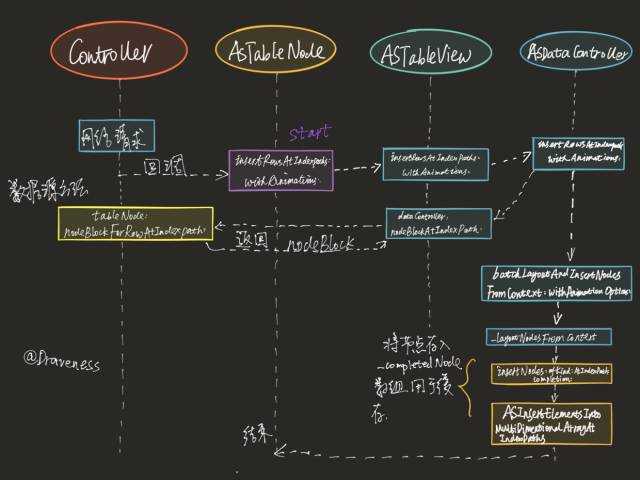 Controller
ASTableNode
ASTableView
ASDataController
网络请求
回调
start
insertRowsAtIndexpaths
withAnimations.
insertRowsAtIndexPaths.
withAnimations.
insertRowsAtIndexpaths
withAnimations.
数据源方法
tableNode:
nodeBlockForRowAtIndexpath:
返回 nodeBlock
dataController:
nodeBlockAtIndexPath.
batchLayoutAndInsertNodes
FromContext: withAnimationOption:
_layoutNodesFromContext
insertNodes:ofKind:AtIndexPath
completion:
ASInsertElementsInto
MultiDimentionalArrayAt
IndexPaths
将节点存入
_completedNode
数组用于缓
存.
@Draveness
结束